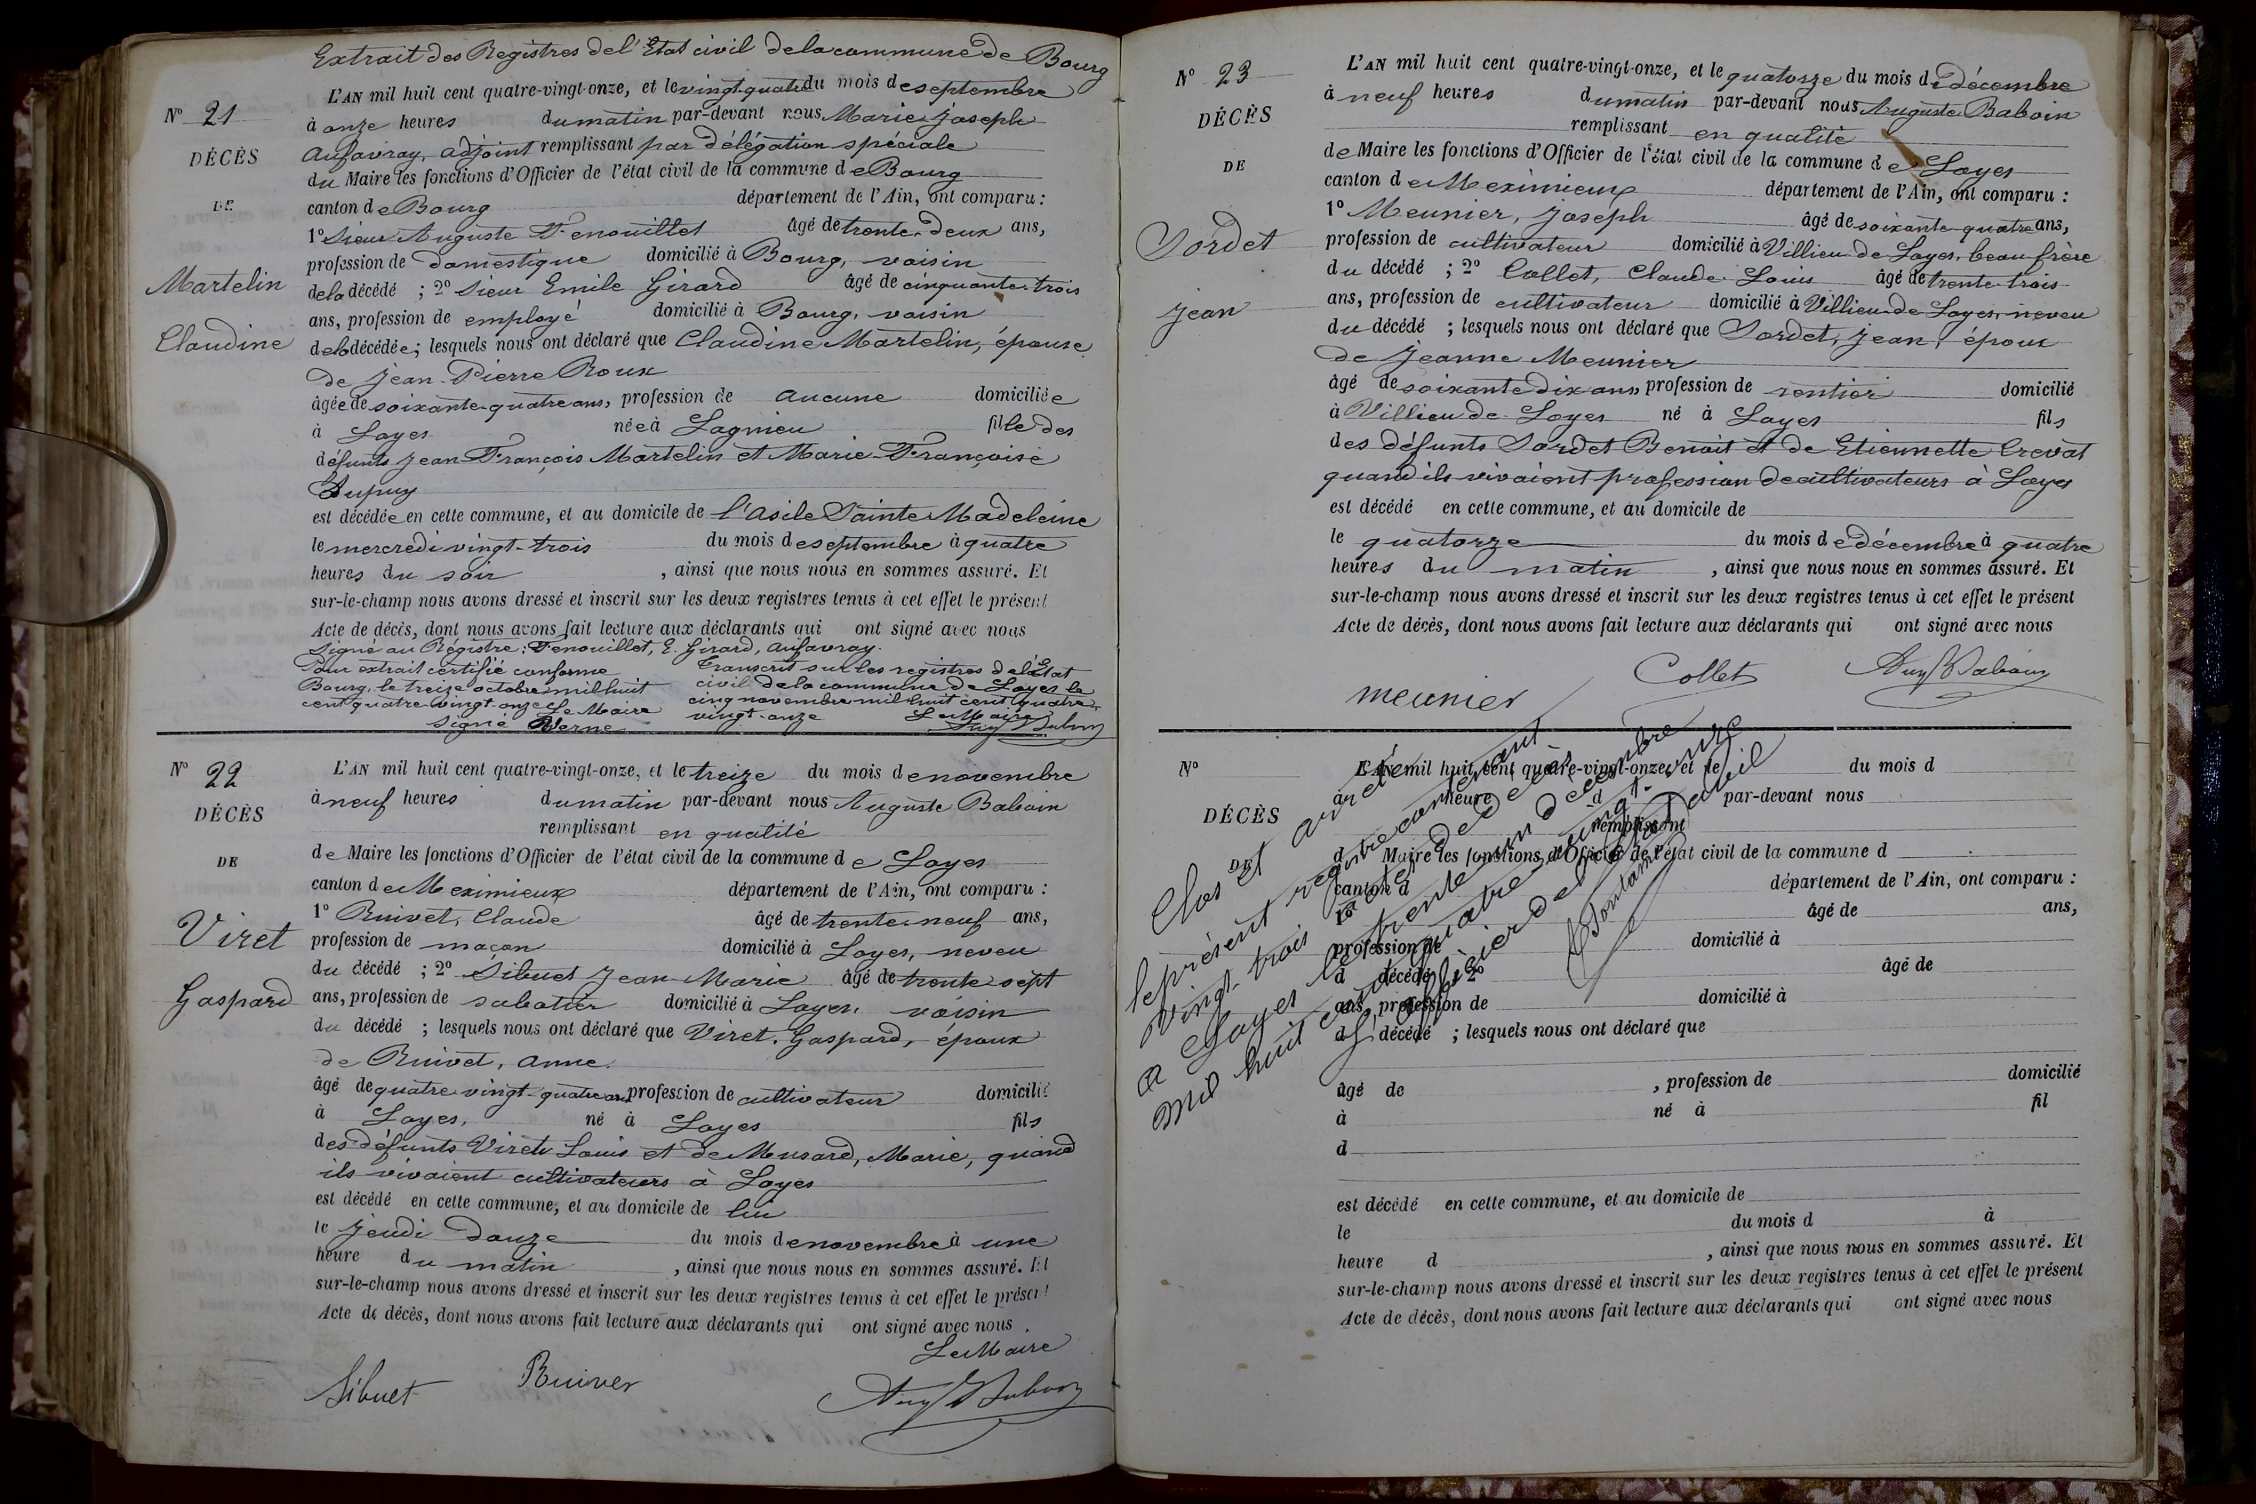 Extrait des Registres de l'Etat civil de la commune de Bourg
L'AN mil huit cent quatre-vingt-onze, et le vingt quatre du mois de septembre
N° 21
à onze heures du matin par-devant nous Marie Joseph
Aufavray, adjoint remplissant par délégation spéciale
DÉCÈS
du Maire les fonctions d'Officier de l'état civil de la commune de Bourg
DE
canton de Bourg département de l'Ain, ont comparu :
1° Sieur Auguste Fenouillet âgé de trente-deux ans,
profession de domestique domicilié à Bourg, voisin
Martelin
de la décédé ; 2° Sieur Emile Girard âgé de cinquante-trois
ans, profession de employé domicilié à Bourg, voisin
Claudine
de la décédée ; lesquels nous ont déclaré que Claudine Martelin, épouse
de Jean-Pierre Roux
âgée de soixante-quatre ans, profession de aucune domiciliée
à Loyes née à Lagnieu fille des
défunts Jean François Martelin et Marie-Françoise
Dupuy
est décédée en cette commune, et au domicile de l'asile Sainte Madeleine
le mercredi vingt-trois du mois de septembre à quatre
heures du soir , ainsi que nous nous en sommes assuré. Et
sur-le-champ nous avons dressé et inscrit sur les deux registres tenus à cet effet le présent
Acte de décès, dont nous avons fait lecture aux déclarants qui ont signé avec nous
Signé au Régistre : Fenouillet, E. Girard, Aufavray.
Pour extrait certifié conforme
Bourg, le treize octobre mil huit
cent quatre vingt-onze Le Maire
Signé Verne
Transcrit sur les registres de l'Etat
civil de la commune de Loyes le
cinq novembre mil huit cent quatre
vingt-onze Le Maire
N° 22
L'AN mil huit cent quatre-vingt-onze, et le treize du mois de novembre
à neuf heures du matin par-devant nous Auguste Baboin
DÉCÈS
remplissant en qualité
DE
de Maire les fonctions d'Officier de l'état civil de la commune de Loyes
canton de Meximieux département de l'Ain, ont comparu :
1° Ruivet, Claude âgé de trente-neuf ans,
Viret
profession de maçon domicilié à Loyes, neveu
du décédé ; 2° Sibuet Jean-Marie âgé de trente sept
Gaspard
ans, profession de sabotier domicilié à Loyes, voisin
du décédé ; lesquels nous ont déclaré que Viret, Gaspard, époux
de Ruivet, Anne.
âgé de quatre vingt-quatre ans profession de cultivateur domicilié
à Loyes, né à Loyes fils
des défunts Viret Louis et de Musard, Marie, quand
ils vivaient cultivateurs à Loyes
est décédé en cette commune, et au domicile de lui
le jeudi douze du mois de novembre à une
heure du matin , ainsi que nous nous en sommes assuré. Et
sur-le-champ nous avons dressé et inscrit sur les deux registres tenus à cet effet le présent
Acte de décès, dont nous avons fait lecture aux déclarants qui ont signé avec nous .
Le Maire
Sibuet Ruivet
N° 23
L'AN mil huit cent quatre-vingt-onze, et le quatorze du mois de décembre
à neuf heures du matin par-devant nous Auguste Baboin
DÉCÈS
remplissant en qualité
DE
de Maire les fonctions d'Officier de l'état civil de la commune de Loyes
canton de Meximieux département de l'Ain, ont comparu :
1° Meunier, Joseph âgé de soixante-quatre ans,
Sordet
profession de cultivateur domicilié à Villieu de Loyes, beau frère
du décédé ; 2° Collet, Claude Louis âgé de trente-trois
Jean
ans, profession de cultivateur domicilié à Villieu de Loyes, neveu
du décédé ; lesquels nous ont déclaré que Sordet, Jean, époux
de Jeanne Meunier
âgé de soixante dix ans, profession de rentier domicilié
à Villieu de Loyes né à Loyes fils
des défunts Sordet Benoit et de Etiennette Crevat
quand ils vivaient profession de cultivateurs à Loyes
est décédé en cette commune, et au domicile de
le quatorze du mois de décembre à quatre
heures du matin , ainsi que nous nous en sommes assuré. Et
sur-le-champ nous avons dressé et inscrit sur les deux registres tenus à cet effet le présent
Acte de décès, dont nous avons fait lecture aux déclarants qui ont signé avec nous
meunier Collet Aug Baboin
N°
L'AN mil huit cent quatre-vingt-onze, et le du mois d
à heure d par-devant nous
DÉCÈS
remplissant
DE
d Maire les fonctions d'Officier de l'état civil de la commune d
canton d département de l'Ain, ont comparu :
1° âgé de ans,
profession de domicilié à
d décédé 2° âgé de
ans, profession de domicilié à
d décédé ; lesquels nous ont déclaré que
âgé de , profession de domicilié
à né à fil
d
est décédé en cette commune, et au domicile de
le du mois d à
heure d , ainsi que nous nous en sommes assuré. Et
sur-le-champ nous avons dressé et inscrit sur les deux registres tenus à cet effet le présent
Acte de décès, dont nous avons fait lecture aux déclarants qui ont signé avec nous
Clos et arrêté
le présent registre contenant
vingt-trois actes de décès
a Loyes le trente-un décembre
mil huit cent quatre-vingt-onze
L'officier de l'état civil